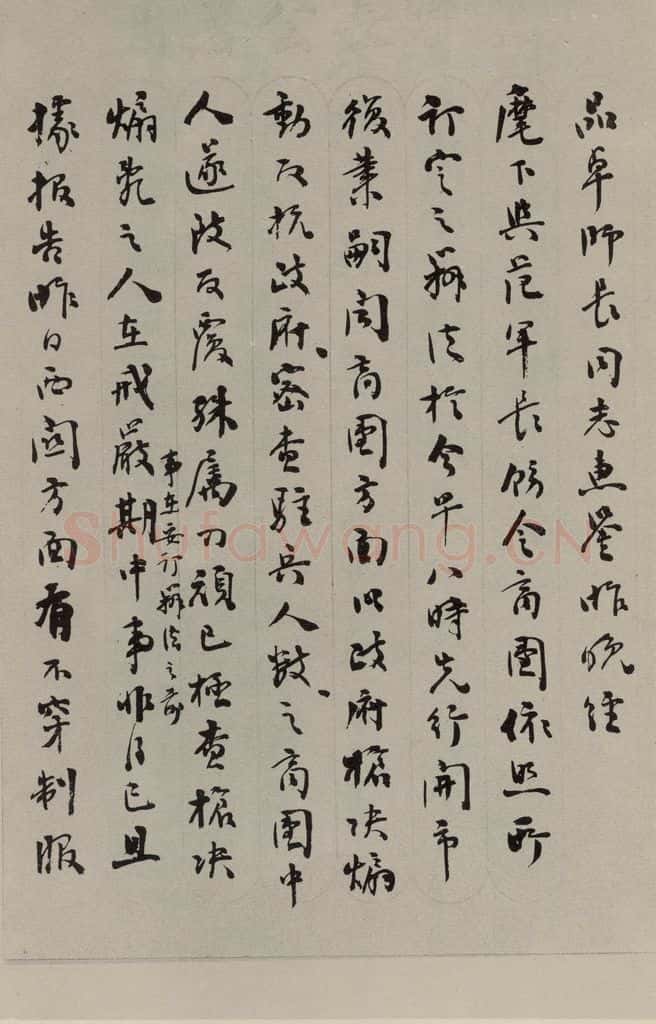 品卓師長同志惠鑒昨晚經
麾下與范軍長飭令商團依照所
訂定之辦法於今早八時先行開市
復業嗣聞商團方面以政府槍決煽
動反抗政府、密查駐兵人數、之商團中
人遂致反覆殊屬刁頑已極查槍決
煽亂之人在戒嚴期中事非得已且
事在妥訂辦法之前
據报告昨日西關方面有不穿制服
Shufawang.CN